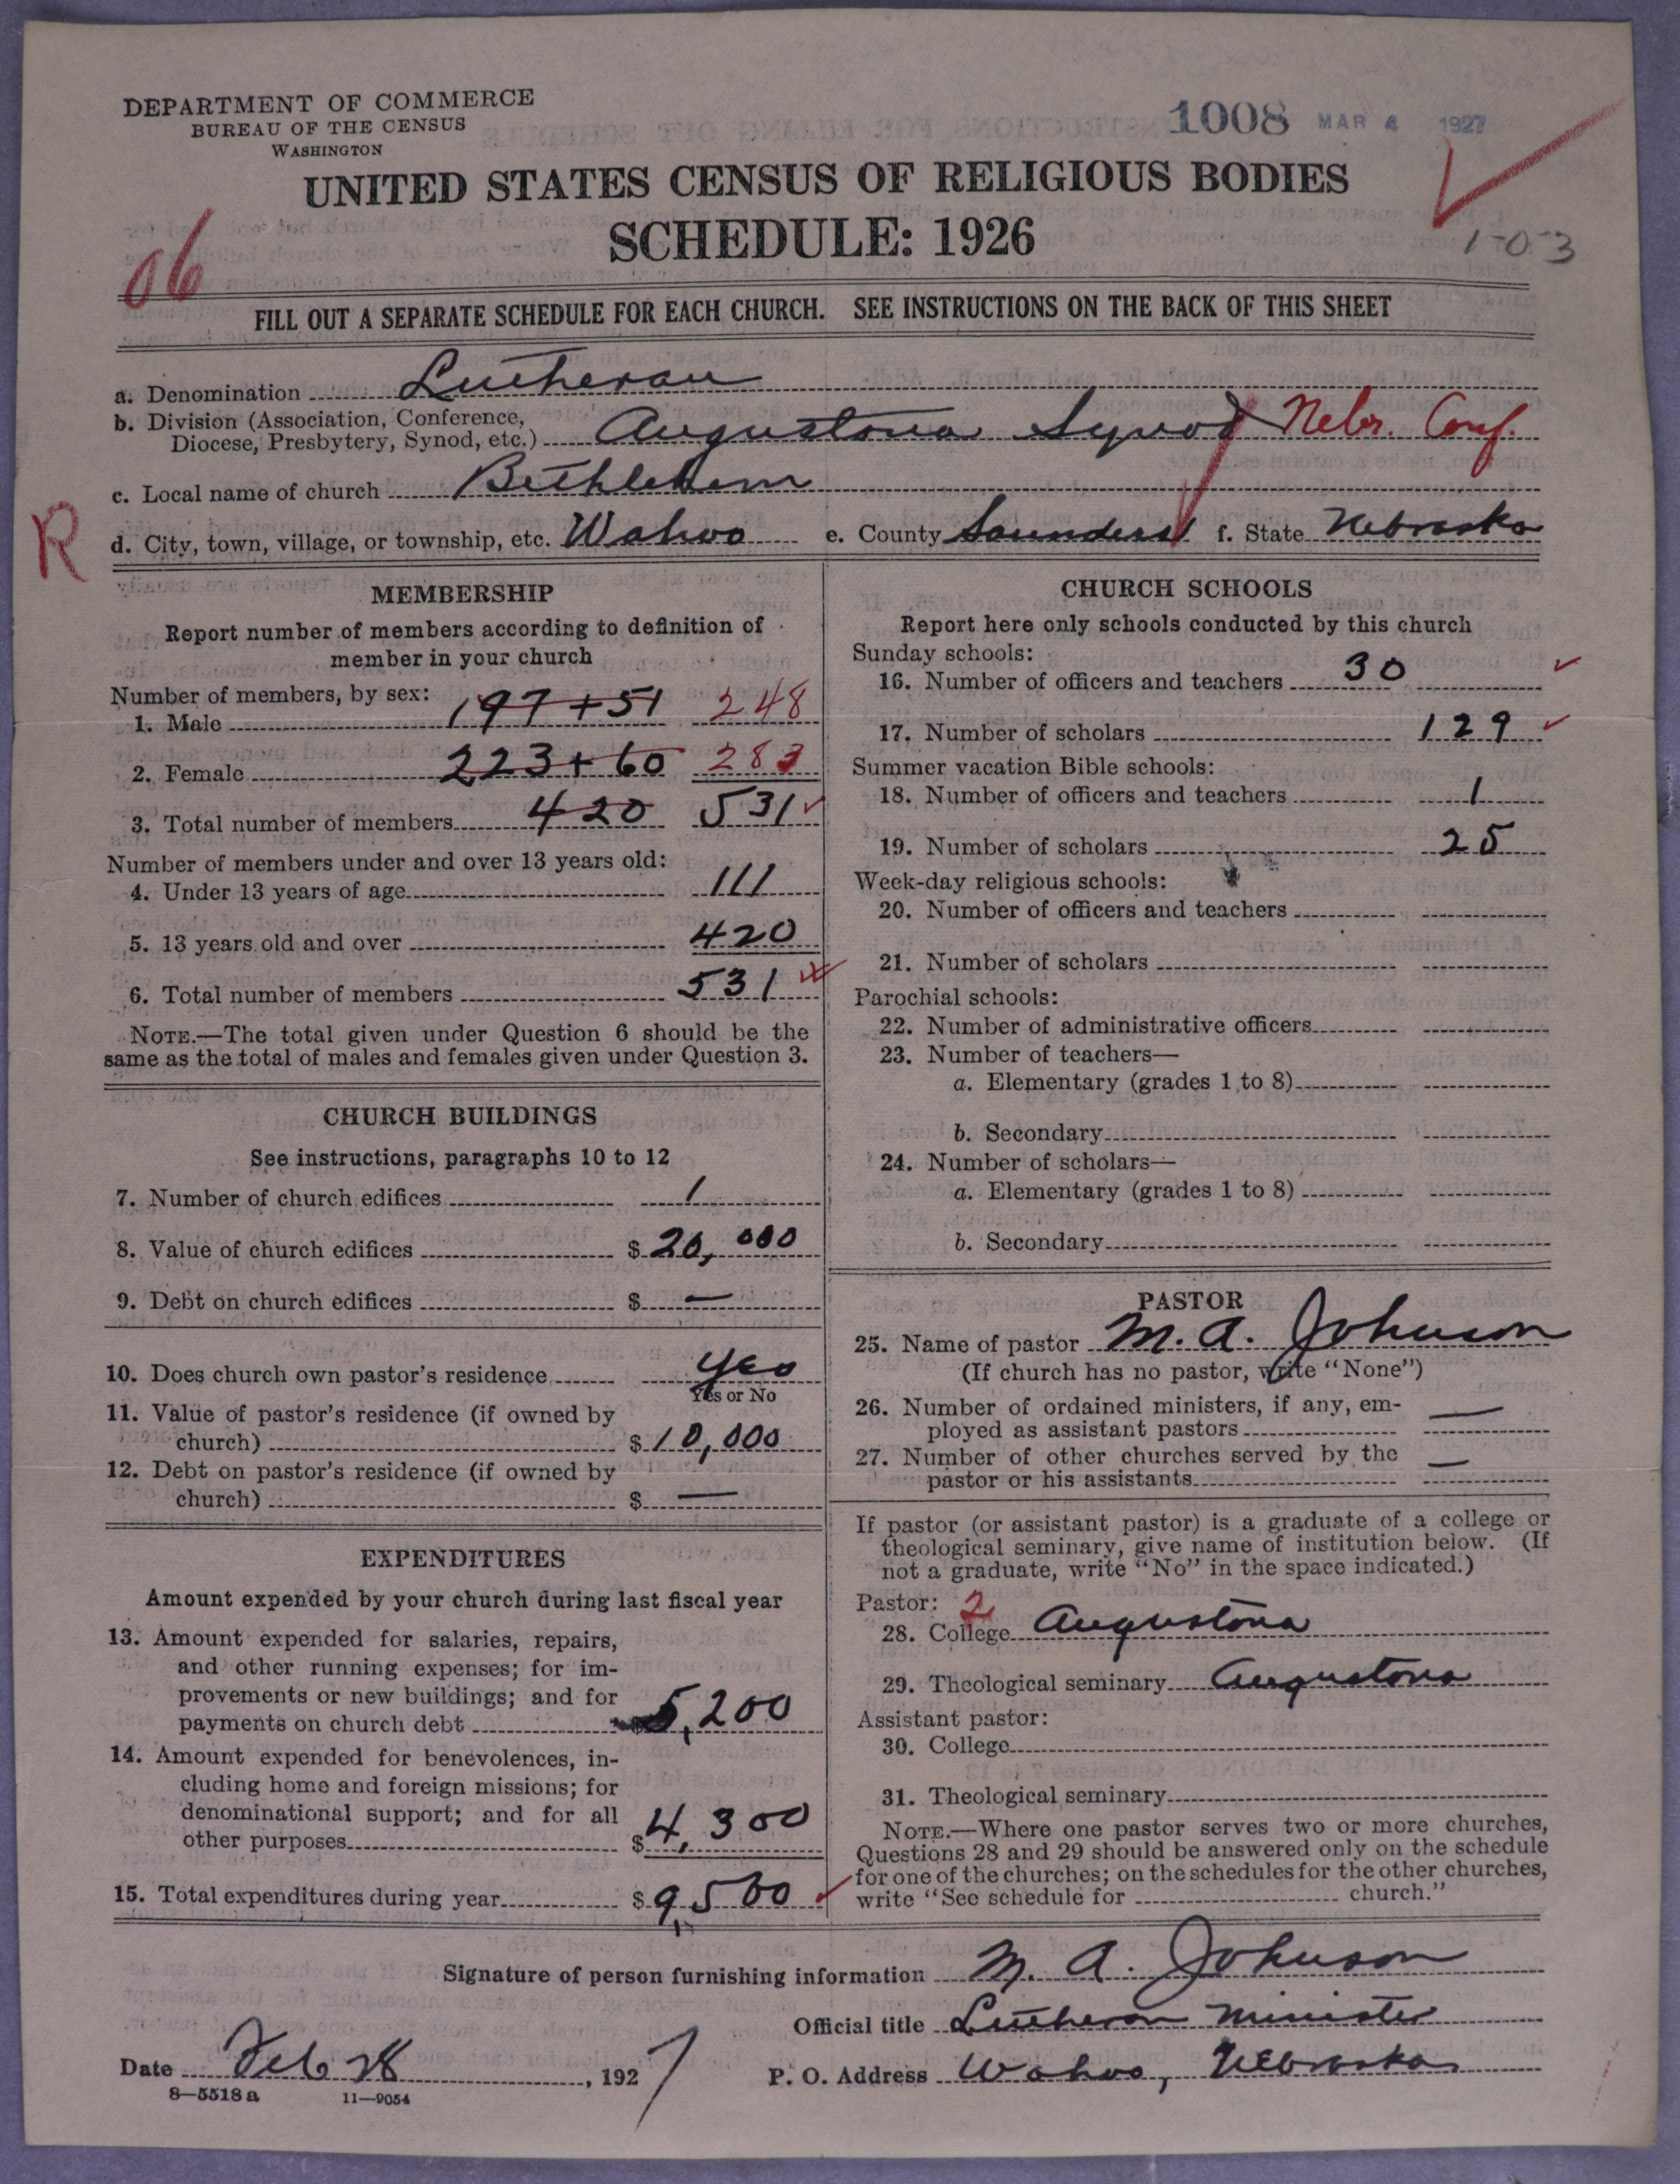 DEPARTMENT OF COMMERCE
BUREAU OF THE CENSUS
WASHINGTON
1008 MAR 4 1927
UNITED STATES CENSUS OF RELIGIOUS BODIES
SCHEDULE: 1926
1-0-3
06
FILL OUT A SEPARATE SCHEDULE FOR EACH CHURCH. SEE INSTRUCTIONS ON THE BACK OF THIS SHEET
a. Denomination Lutheran
b. Division (Association, Conference,
Diocese, Presbytery, Synod, etc.) Augustana Synod Nebr. Conf.
c. Local name of church Bethlehem
R
d. City, town, village, or township, etc. Wahoo e. County Saunders f. State Nebraska
MEMBERSHIP
Report number of members according to definition of
member in your church
Number of members, by sex:
1. Male 197 + 51 248
2. Female 223 + 60 283
3. Total number of members 420 531
Number of members under and over 13 years old:
4. Under 13 years of age 111
5. 13 years old and over 420
6. Total number of members 531
NOTE.—The total given under Question 6 should be the
same as the total of males and females given under Question 3.
CHURCH BUILDINGS
See instructions, paragraphs 10 to 12
7. Number of church edifices 1
8. Value of church edifices $ 20,000
9. Debt on church edifices $ —
10. Does church own pastor's residence yes
Yes or No
11. Value of pastor's residence (if owned by
church) $ 10,000
12. Debt on pastor's residence (if owned by
church) $ —
EXPENDITURES
Amount expended by your church during last fiscal year
13. Amount expended for salaries, repairs,
and other running expenses; for im-
provements or new buildings; and for
payments on church debt 5,200
14. Amount expended for benevolences, in-
cluding home and foreign missions; for
denominational support; and for all
other purposes $ 4,300
15. Total expenditures during year $ 9,500
CHURCH SCHOOLS
Report here only schools conducted by this church
Sunday schools:
16. Number of officers and teachers 30
17. Number of scholars 129
Summer vacation Bible schools:
18. Number of officers and teachers 1
19. Number of scholars 25
Week-day religious schools:
20. Number of officers and teachers
21. Number of scholars
Parochial schools:
22. Number of administrative officers
23. Number of teachers—
a. Elementary (grades 1 to 8)
b. Secondary
24. Number of scholars—
a. Elementary (grades 1 to 8)
b. Secondary
PASTOR
25. Name of pastor M. A. Johnson
(If church has no pastor, write "None")
26. Number of ordained ministers, if any, em-
ployed as assistant pastors —
27. Number of other churches served by the
pastor or his assistants —
If pastor (or assistant pastor) is a graduate of a college or
theological seminary, give name of institution below. (If
not a graduate, write "No" in the space indicated.)
Pastor: 2
28. College Augustana
29. Theological seminary Augustana
Assistant pastor:
30. College
31. Theological seminary
NOTE.—Where one pastor serves two or more churches,
Questions 28 and 29 should be answered only on the schedule
for one of the churches; on the schedules for the other churches,
write "See schedule for church."
Signature of person furnishing information M. A. Johnson
Official title Lutheran Minister
Date Feb 28, 1927 P. O. Address Wahoo, Nebraska
8—5518 a 11—9054